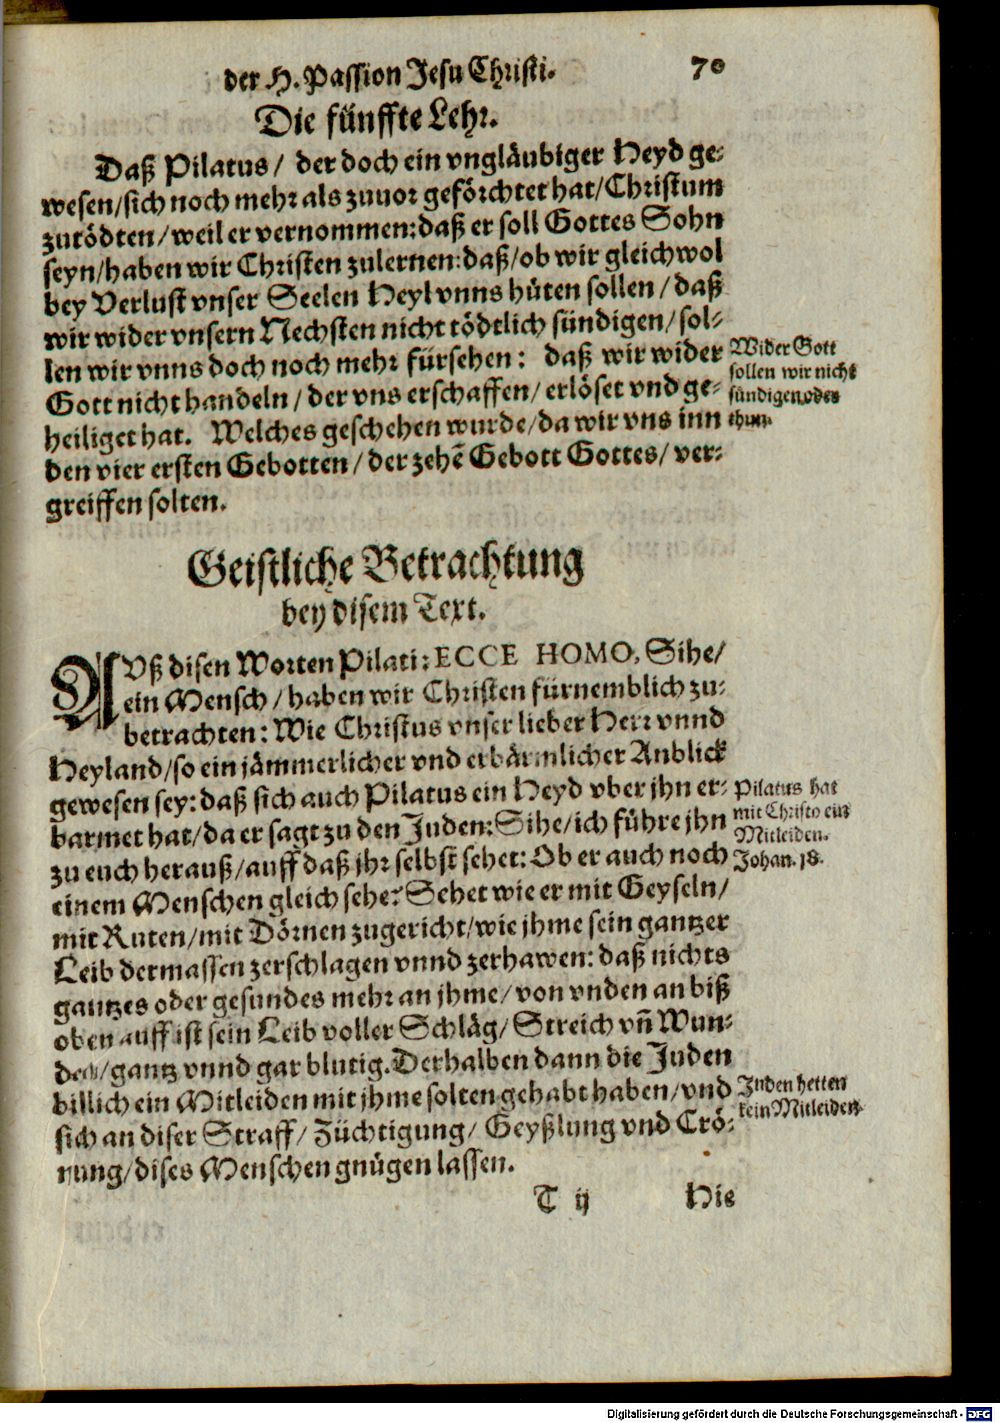 der H. Passion Jesu Christi. 70
Die fünffte Lehr.
Daß Pilatus / der doch ein vngläubiger Heyd ge-
wesen/sich noch mehr als zuuor geförchtet hat/Christum
zutödten/weil er vernommen:daß er soll Gottes Sohn
seyn/haben wir Christen zulernen:daß/ob wir gleichwol
bey Verlust vnser Seelen Heyl vnns hüten sollen / daß
wir wider vnsern Nechsten nicht tödtlich sündigen/sol-
len wir vnns doch noch mehr fürsehen: daß wir wider
Gott nicht handeln / der vns erschaffen/ erlöset vnd ge-
heiliget hat. Welches geschehen wurde/da wir vns inn
den vier ersten Gebotten / der zehē Gebott Gottes/ ver-
greiffen solten.
Wider Gott
sollen wir nicht
sündigen oder
thun.
Geistliche Betrachtung
bey disem Text.
AVß disen Worten Pilati: ECCE HOMO, Sihe/
ein Mensch / haben wir Christen fürnemblich zu-
betrachten: Wie Christus vnser lieber Herr vnnd
Heyland/so ein jämmerlicher vnd erbärmlicher Anblick
gewesen sey: daß sich auch Pilatus ein Heyd vber jhn er-
barmet hat/da er sagt zu den Juden: Sihe/ich führe jhn
zu euch herauß/auff daß jhr selbst sehet: Ob er auch noch
einem Menschen gleich sehe? Sehet wie er mit Geyseln/
mit Ruten/mit Dörnen zugericht/wie jhme sein gantzer
Leib dermassen zerschlagen vnnd zerhawen: daß nichts
gantzes oder gesundes mehr an jhme/ von vnden an biß
oben auff ist sein Leib voller Schläg/ Streich vñ Wun-
den/gantz vnnd gar blutig. Derhalben dann die Juden
billich ein Mitleiden mit jhme solten gehabt haben/vnd
sich an diser Straff/ Züchtigung/ Geyßlung vnd Crö-
nung/dises Menschen gnügen lassen.
Pilatus hat
mit Christo ein
Mitleiden.
Johan. 18.
Juden hetten
kein Mitleiden.
T ij Hie
Digitalisierung gefördert durch die Deutsche Forschungsgemeinschaft - DFG